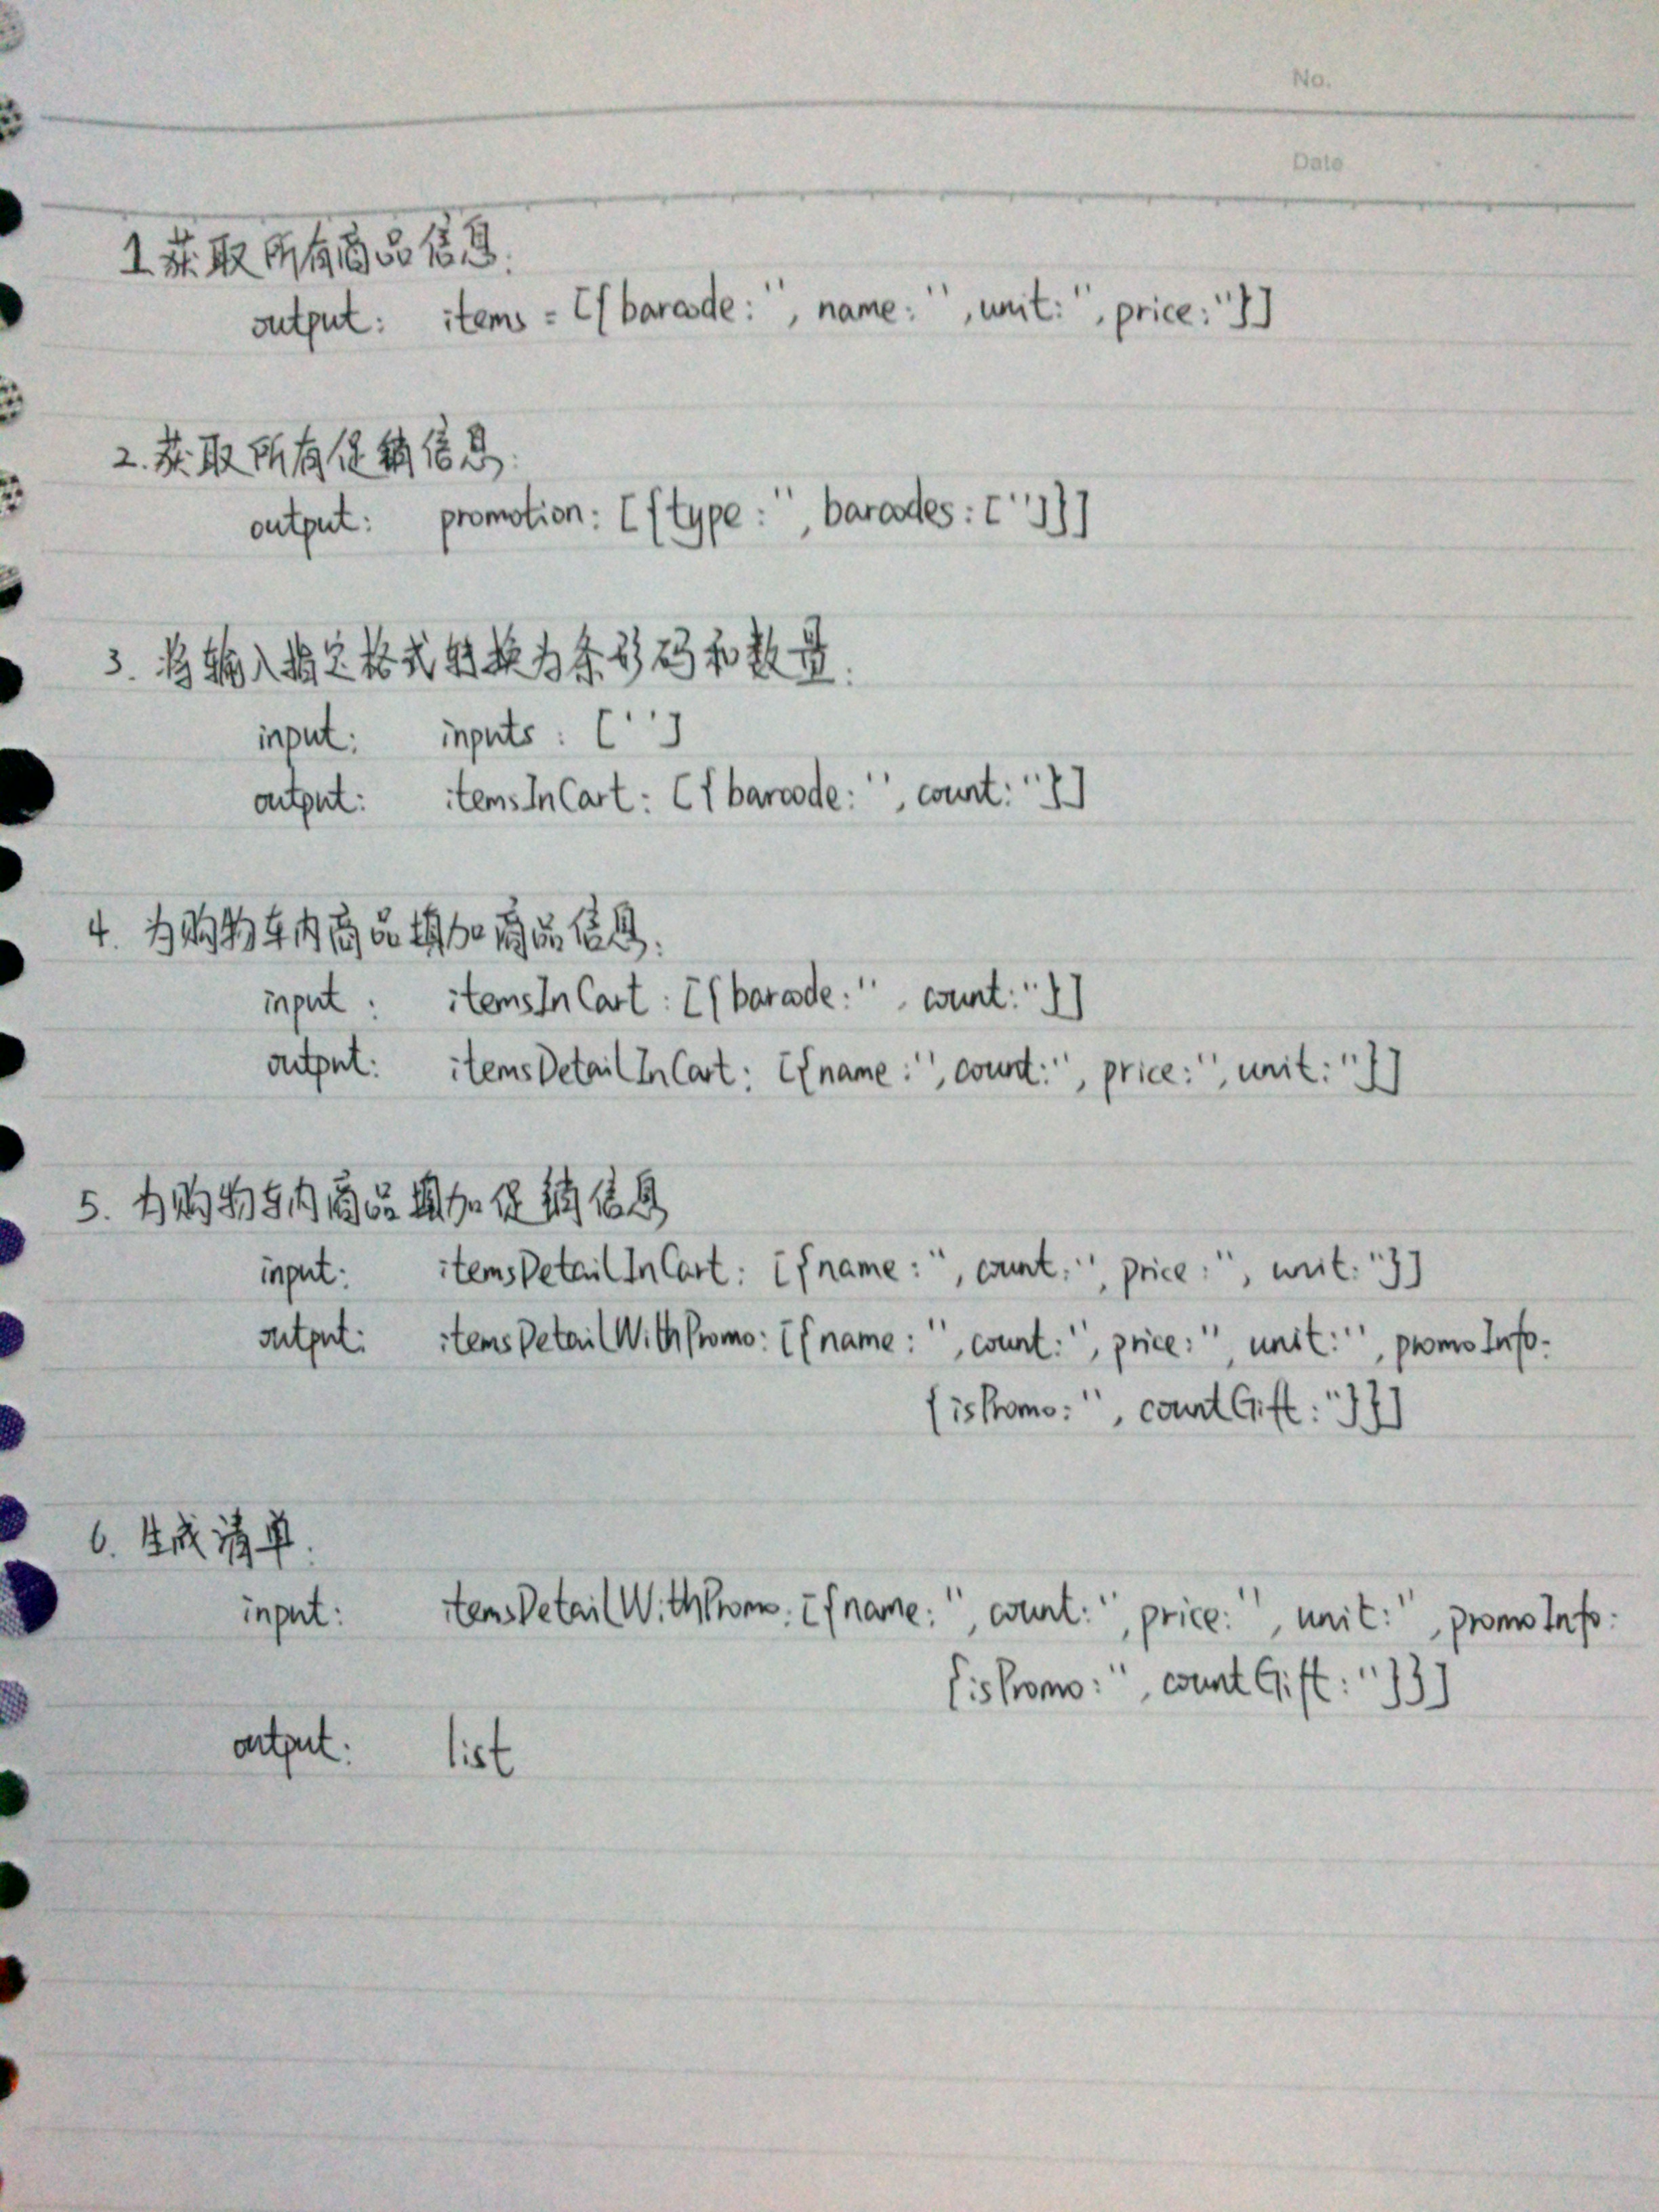 No.
Date
1.获取所有商品信息:
output: items = [{barcode:'', name:'', unit:'', price:''}]
2.获取所有促销信息:
output: promotion: [{type:'', barcodes:['']}]
3. 将输入指定格式转换为条形码和数量:
input: inputs: ['']
output: itemsInCart: [{barcode:'', count:''}]
4. 为购物车内商品填加商品信息:
input: itemsInCart: [{barcode:'', count:''}]
output: itemsDetailInCart: [{name:'', count:'', price:'', unit:''}]
5. 为购物车内商品填加促销信息
input: itemsDetailInCart: [{name:'', count:'', price:'', unit:''}]
output: itemsDetailWithPromo: [{name:'', count:'', price:'', unit:'', promoInfo:
{isPromo:'', countGift:''}}]
6. 生成清单:
input: itemsDetailWithPromo: [{name:'', count:'', price:'', unit:'', promoInfo:
{isPromo:'', countGift:''}}]
output: list